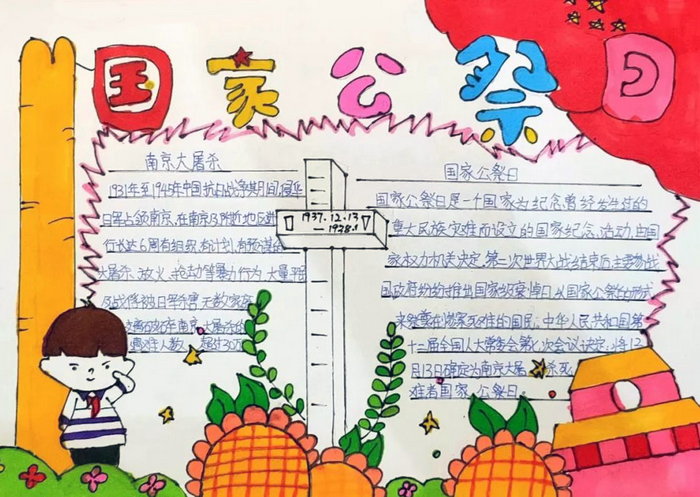 国家公祭日
南京大屠杀
1931年至1945年中国抗日战争期间,侵华
日军占领南京,在南京及附近地区进
行长达6周有组织、有计划、有预谋的
大屠杀、放火、抢劫等暴力行为,大量平民
及战俘被日军杀害,无数家庭
支离破碎,南京大屠杀的
遇难人数 超过30万
1937.12.13
—1938.1
国家公祭日
国家公祭日是一个国家为纪念曾经发生过的
重大民族灾难而设立的国家纪念活动,由国
家权力机关决定。第二次世界大战结束后,主要参战
国政府纷纷推出国家级哀悼日,以国家公祭的形式
来祭奠在惨案死难的国民,中华人民共和国第
十二届全国人大常委会第七次会议决定:将12
月13日确定为南京大屠杀死
难者国家公祭日